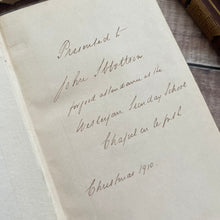 Presented to
John Ibbotson
for
perfect attendance at the
Wesleyan Sunday School
Chapel en le frith
Christmas 1910.